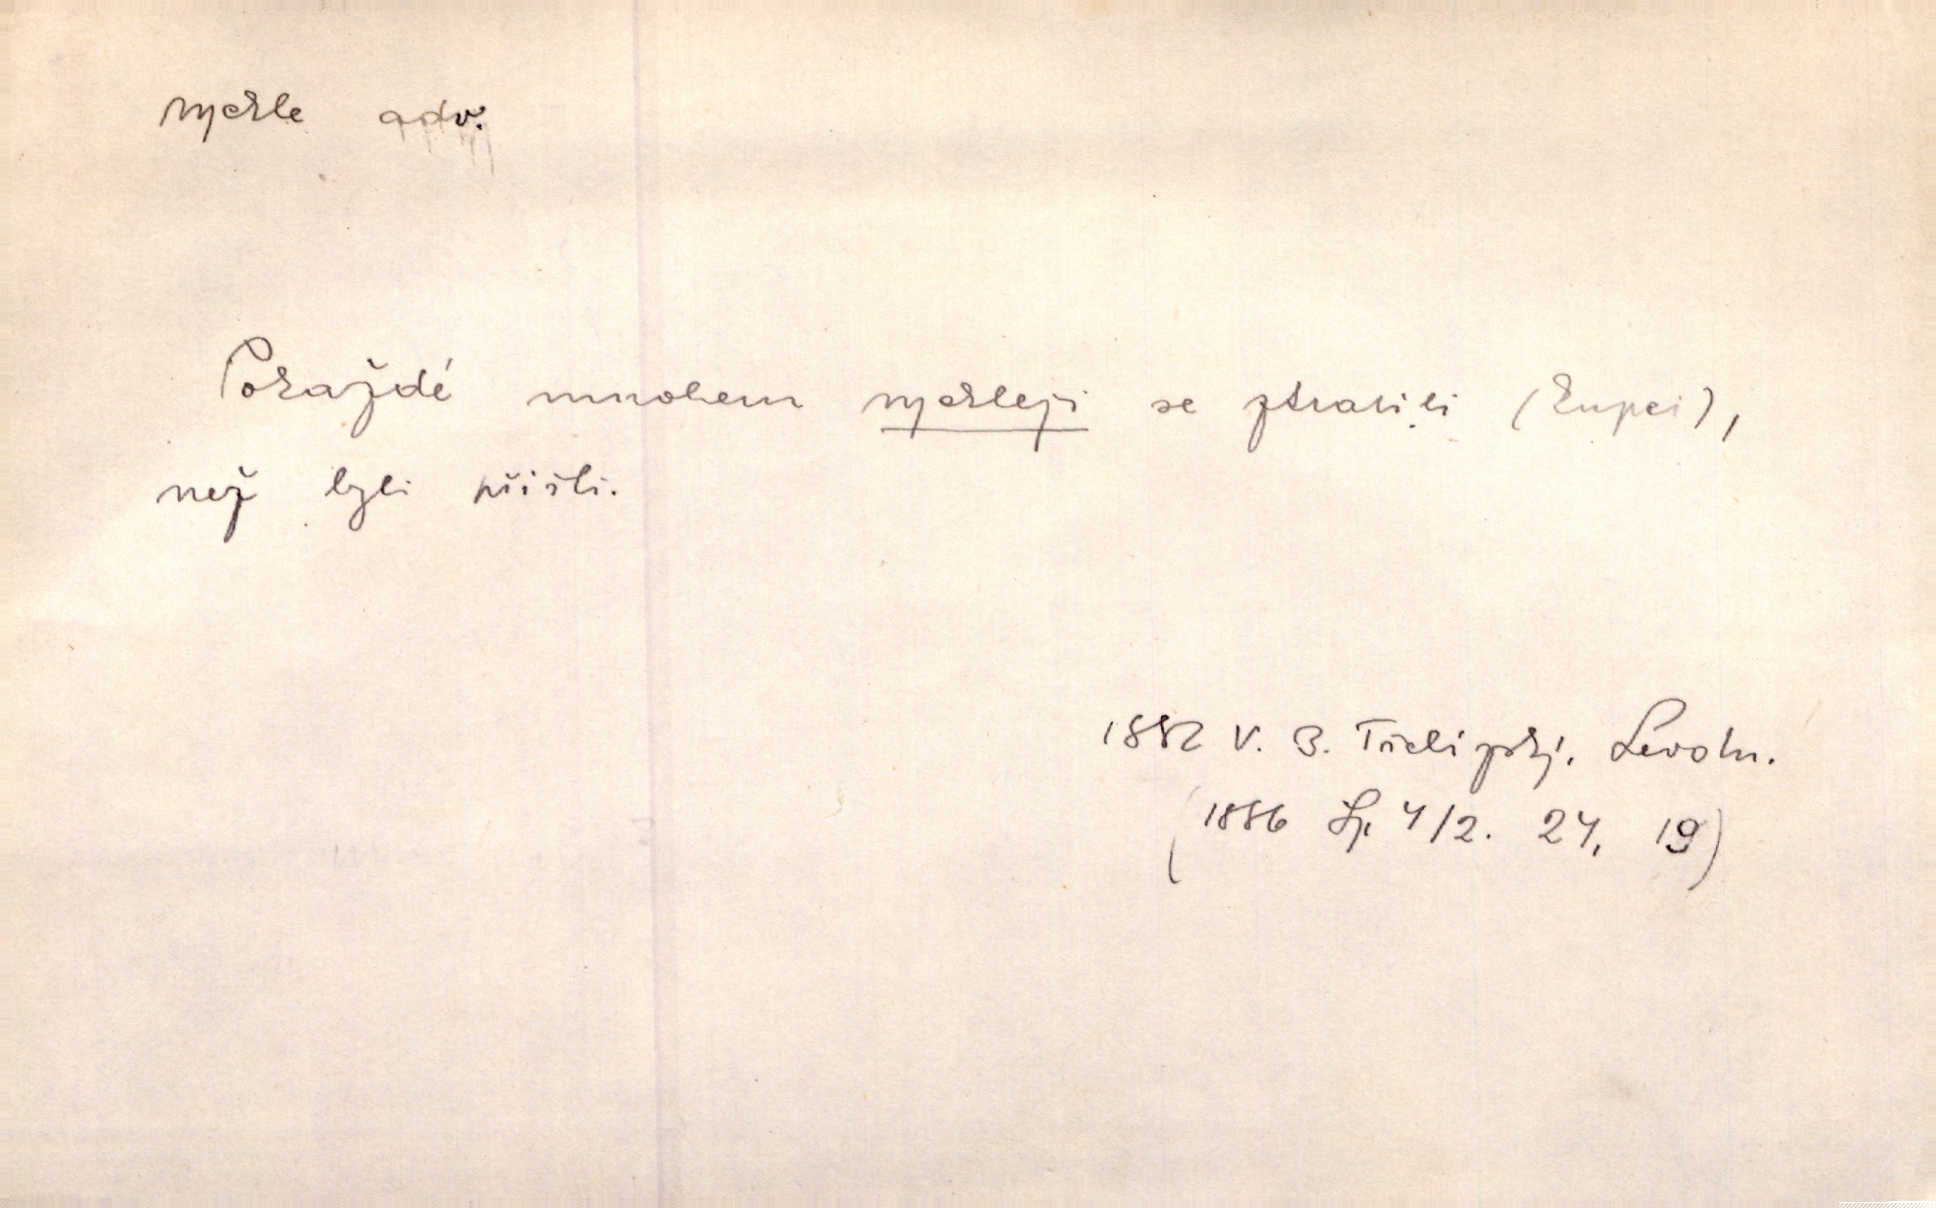 rychle adv.
Pokaždé mnohem rychleji se ztratili (kupci),
než byli přišli.
1882 V. B. Třebízský, Levohr.
(1886 Sp. 4/2. 24, 19)